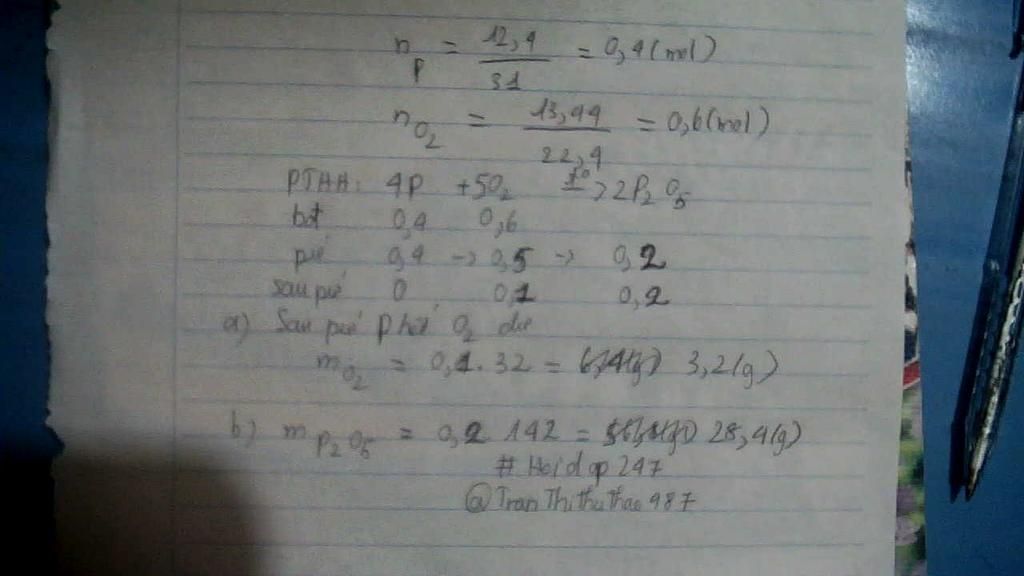 n_P = 12,4 / 31 = 0,4 (mol)
n_O2 = 13,44 / 22,4 = 0,6 (mol)
PTHH: 4P + 5O2 t° -> 2P2O5
bđ 0,4 0,6
pứ 0,4 -> 0,5 -> 0,2
sau pứ 0 0,1 0,2
a) Sau pứ P hết, O2 dư
m_O2 = 0,1. 32 = 3,2 (g)
b) m_P2O5 = 0,2 142 = 28,4 (g)
# Hoidap 247
@TranThithuThao987